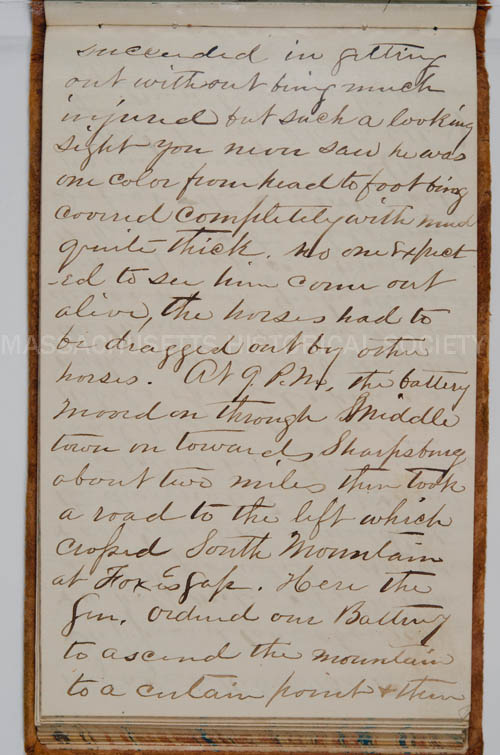 succeeded in getting
out without being much
injured but such a looking
sight you never saw he was
one color from head to foot being
covered completely with mud
quite thick. no one expect
-ed to see him come out
alive, the horses had to
be dragged out by other
horses. At 9 P.M. the battery
moved on through Middle
town on towards Sharpsburg
about two miles then took
a road to the left which
crosed South Mountain
at Fox's Gap. Here the
Gen. ordered our Battery
to ascend the mountain
to a certain point & then
MASSACHUSETTS HISTORICAL SOCIETY